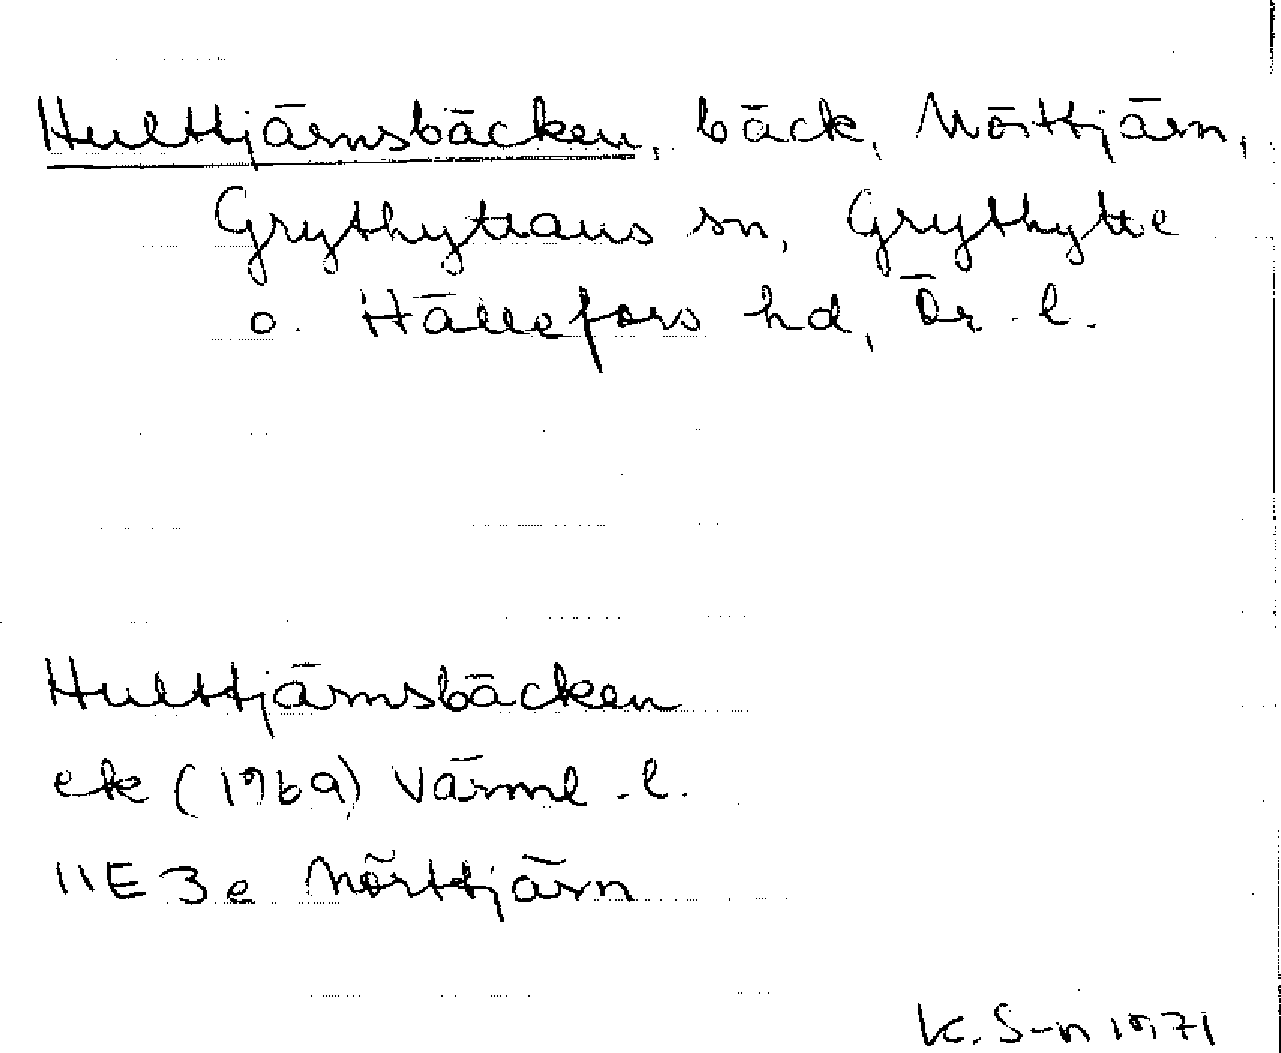 Hulttjärnsbäcken, bäck, Mörttjärn,
Grythyttans sn, Grythytte
o. Hällefors hd, Ör. l.
Hulttjärnsbäcken
ek (1969) Värml. l.
11E 3e Mörttjärn
K. S-n 1971